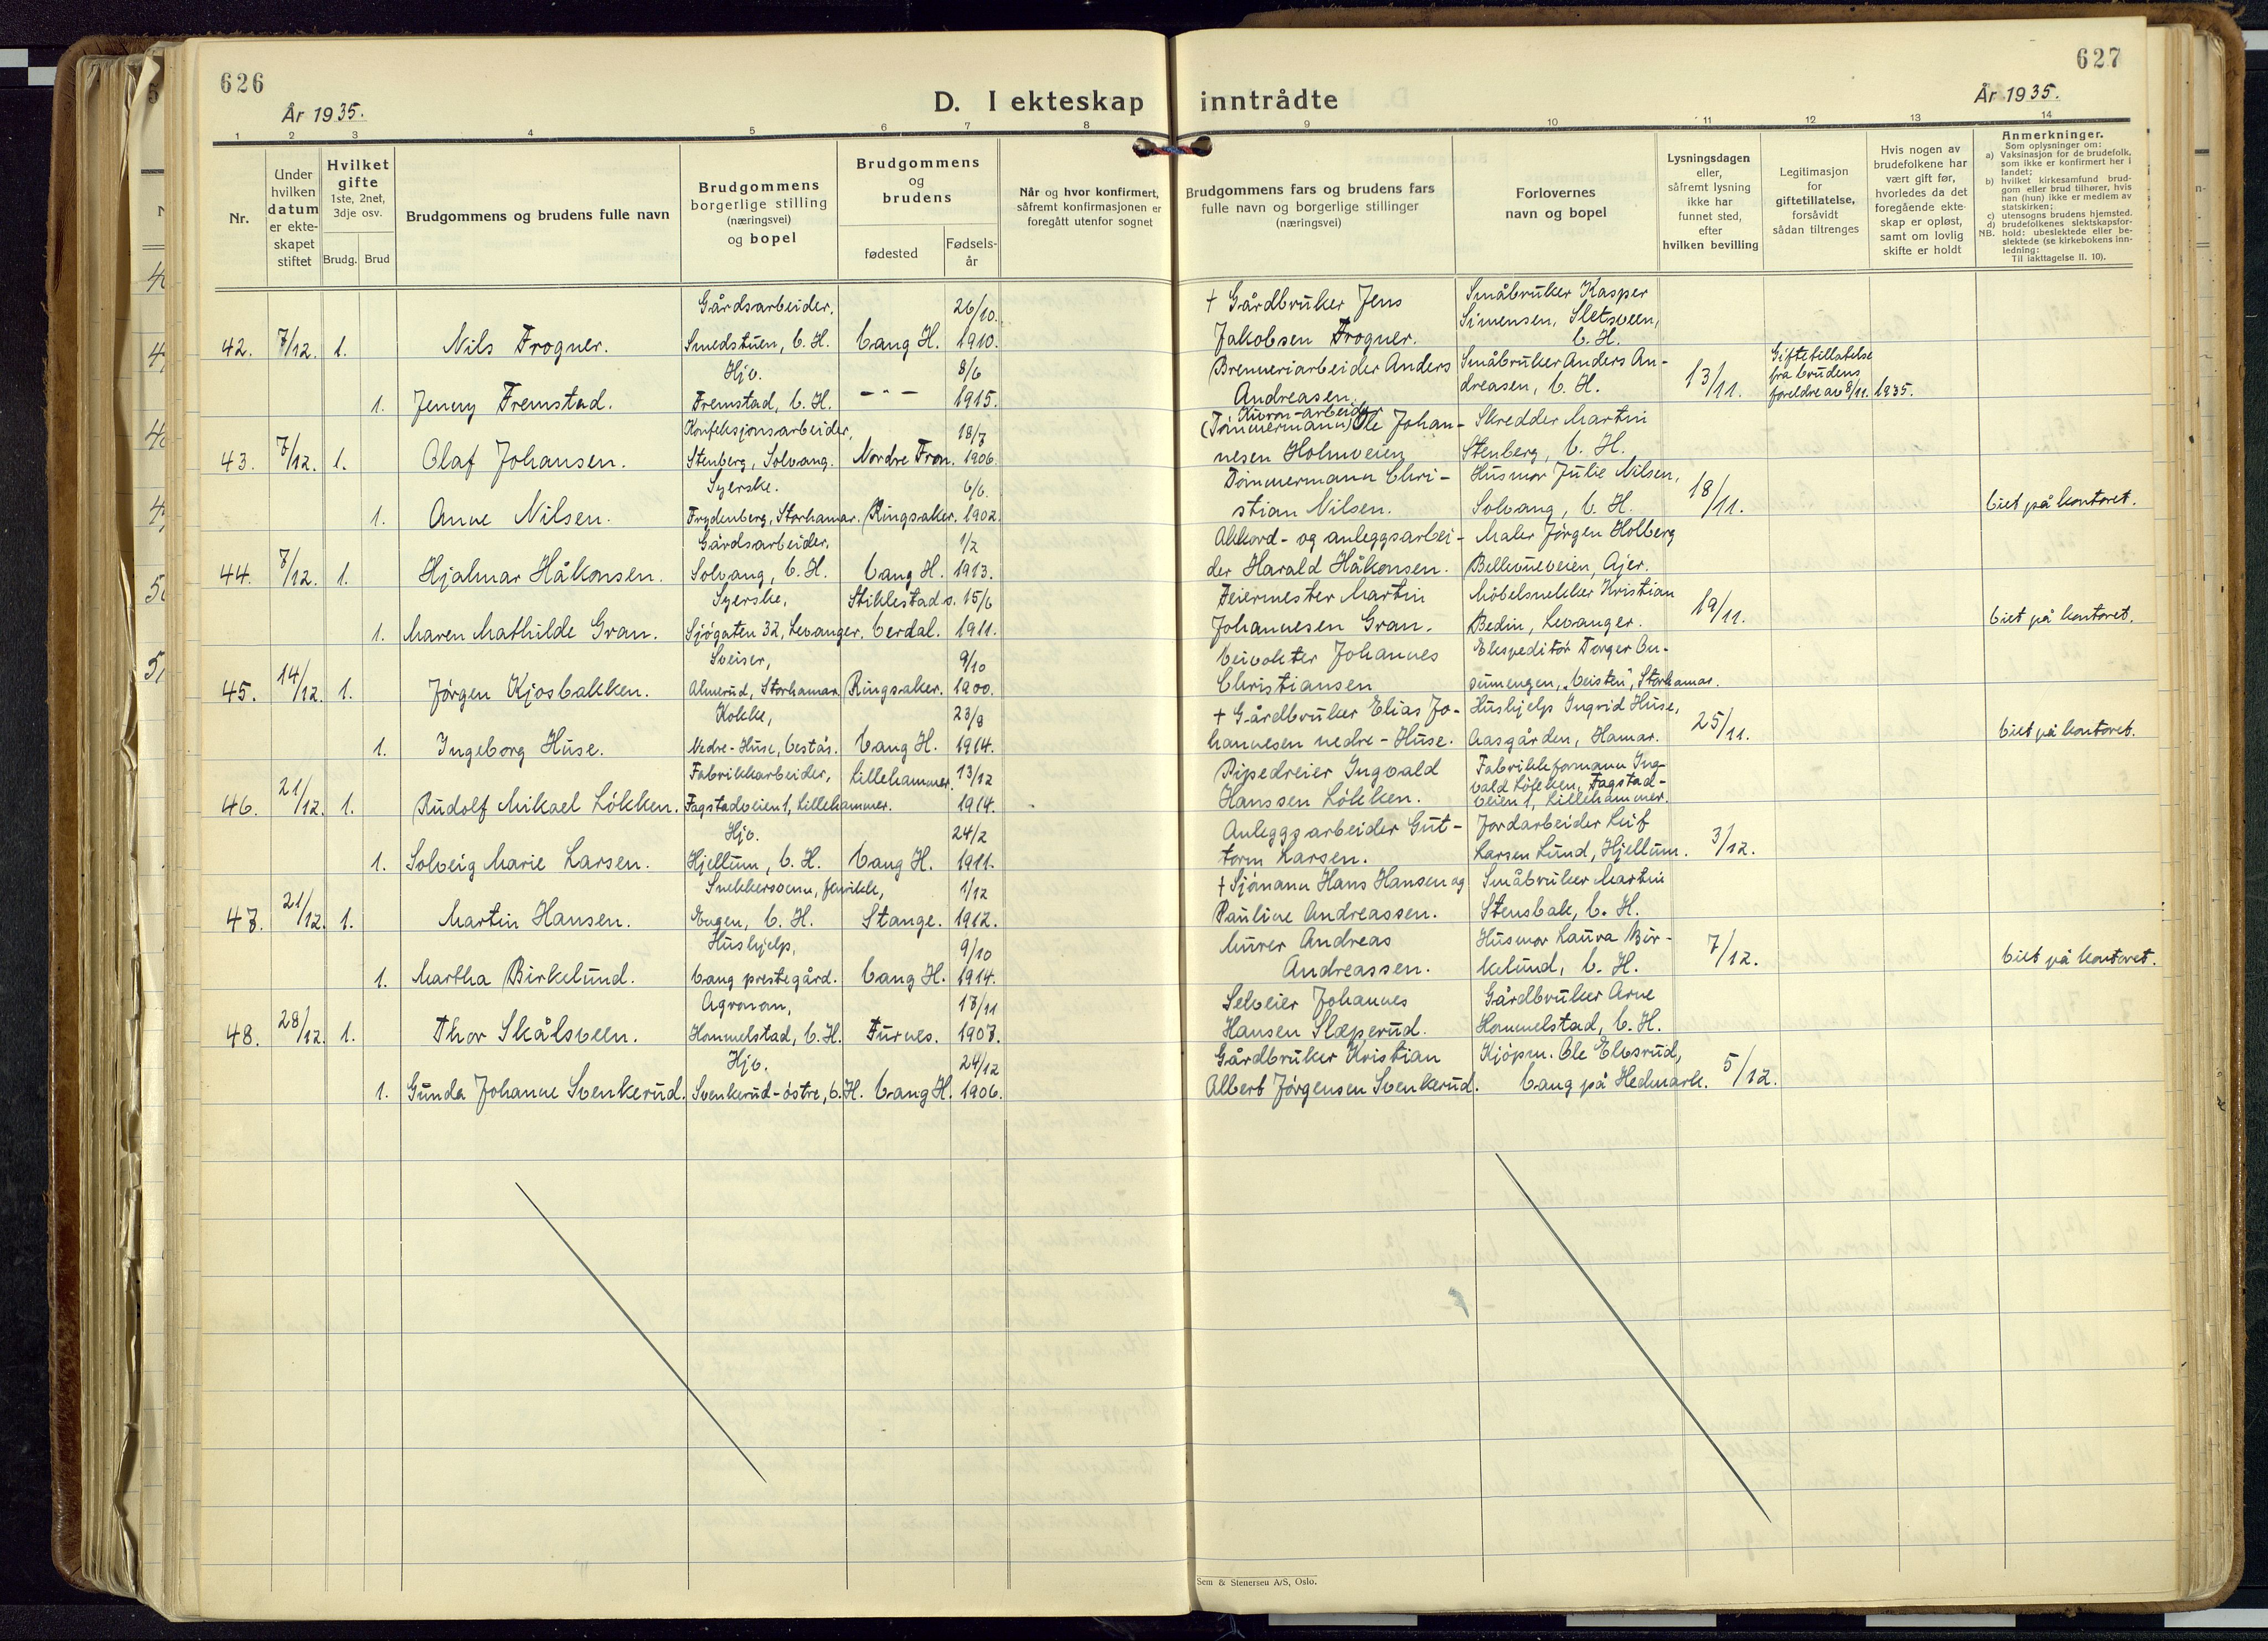 626
År 1935.
D. I ekteskap inntrådte
627
År 1935.
1 2 3 4 5 6 7 8 9 10 11 12 13 14
Nr.
Under
hvilken
datum
er ekte-
skapet
stiftet
Hvilket
gifte
1ste, 2net,
3dje osv.
Brudg. Brud
Brudgommens og brudens fulle navn
Brudgommens
borgerlige stilling
(næringsvei)
og bopel
Brudgommens
og
brudens
fødested
Fødsels-
år
Når og hvor konfirmert,
såfremt konfirmasjonen er
foregått utenfor sognet
Brudgommens fars og brudens fars
fulle navn og borgerlige stillinger
(næringsvei)
Forlovernes
navn og bopel
Lysningsdagen
eller,
såfremt lysning
ikke har
funnet sted,
efter
hvilken bevilling
Legitimasjon
for
giftetillatelse,
forsåvidt
sådan tiltrenges
Hvis nogen av
brudefolkene har
vært gift før,
hvorledes da det
foregående ekte-
skap er opløst,
samt om lovlig
skifte er holdt
Anmerkninger.
Som oplysninger om:
a) Vaksinasjon for de brudefolk,
som ikke er konfirmert her i
landet;
b) hvilket kirkesamfund brud-
gom eller brud tilhører, hvis
han (hun) ikke er medlem av
statskirken;
c) utensogns brudens hjemsted.
d) brudefolkenes slektskapsfor-
NB. hold: ubeslektede eller be-
slektede (se kirkebokens inn-
ledning:
Til iakttagelse II. 10).
Gårdsarbeider. 26/10. † Gårdbruker Jens Småbruker Kasper
Simensen, Sletsveen,
42. 7/12. 1. Nils Frogner. Smedstuen, V. H. Vang H. 1910. Jakobsen Frogner. V. H.
Hjv. 8/6 Brenneriarbeider Anders Småbruker Anders An- Giftetillatelse
fra brudens
1. Jenny Fremstad. Fremstad, V. H. – " – 1915. Andreasen. dreasen, V. H. 13/11. foreldre av 8/11. 1935.
Konfeksjonsarbeider, 18/7 (Tömmermann) Ole Johan- Skredder Martin
43. 7/12. 1. Olaf Johansen. Stenberg, Solvang. Nordre Fron. 1906. nesen Holmveien Stenberg, V. H.
Syerske. 6/6. Tömmermann Chri- Husmor Julie Nilsen,
1. Anne Nilsen. Frydenberg, Storhamar. Ringsaker. 1902. stian Nilsen. Solvang, V. H. 18/11. Viet på kontoret.
Gårdsarbeider. 1/2 Akkord- og anleggsarbei- Maler Jørgen Holberg
44. 7/12. 1. Hjalmar Håkonsen. Solvang, V. H. Vang H. 1913. der Harald Håkonsen. Bellevueveien, Ajer.
Syerske, Stiklestad s. 15/6 Feiermester Martin Möbelsnekker Kristian
1. Maren Mathilde Gran. Sjögaten 32, Levanger. Verdal. 1911. Johannesen Gran. Bedin, Levanger. 19/11. Viet på kontoret.
Sveiser, 9/10 Veivokter Johannes Ekspeditör Torger On-
45. 14/12. 1. Jörgen Kjosbakken. Almerud, Storhamar Ringsaker. 1900. Christiansen sumengen, "Veisten", Storhamar.
Kokke, 23/9 † Gårdbruker Elias Jo- Hushjelp Ingrid Huse,
1. Ingeborg Huse. Nedre-Huse, Vestås. Vang H. 1914. hannesen nedre-Huse. Aasgården, Hamar. 25/11. Viet på kontoret.
Fabrikkarbeider, Lillehammer. 13/12 Pipedreier Ingvald Fabrikkformann Ing-
vald Lökken, Fagstad-
46. 21/12. 1. Rudolf Mikael Lökken. Fagstadveien 1, Lillehammer. 1914. Hanssen Lökken. veien 1, Lillehammer.
Hjv. 24/2 Anleggsarbeider Gut- Jordarbeider Leif
1. Solveig Marie Larsen. Hjellum, V. H. Vang H. 1911. torm Larsen. Larsen Lund, Hjellum. 3/12.
Snekkersvenn, 1/12 † Sjömann Hans Hansen og Småbruker Martin
47. 21/12. 1. Martin Hansen. Engen, V. H. Stange. 1912. Pauline Andreassen. Stensbak, V. H.
Hushjelp, 9/10 Murer Andreas Husmor Laura Bir-
1. Martha Birkelund. Vang prestegård. Vang H. 1914. Andreassen. kelund, V. H. 7/12. Viet på kontoret.
Agronom, 17/11 Selveier Johannes Gårdbruker Arne
48. 28/12. 1. Thor Skålsveen. Hommelstad, V. H. Furnes. 1907. Hansen Slæperud. Hommelstad, V. H.
Hjv. 24/12 Gårdbruker Kristian Kjöpm. Ole Elvsrud,
1. Gunda Johanne Svenkerud. Svenkerud-östre, V. H. Vang H. 1906. Albert Jörgensen Svenkerud. Vang på Hedmark. 5/12.
Sem & Stenersen A/S, Oslo.